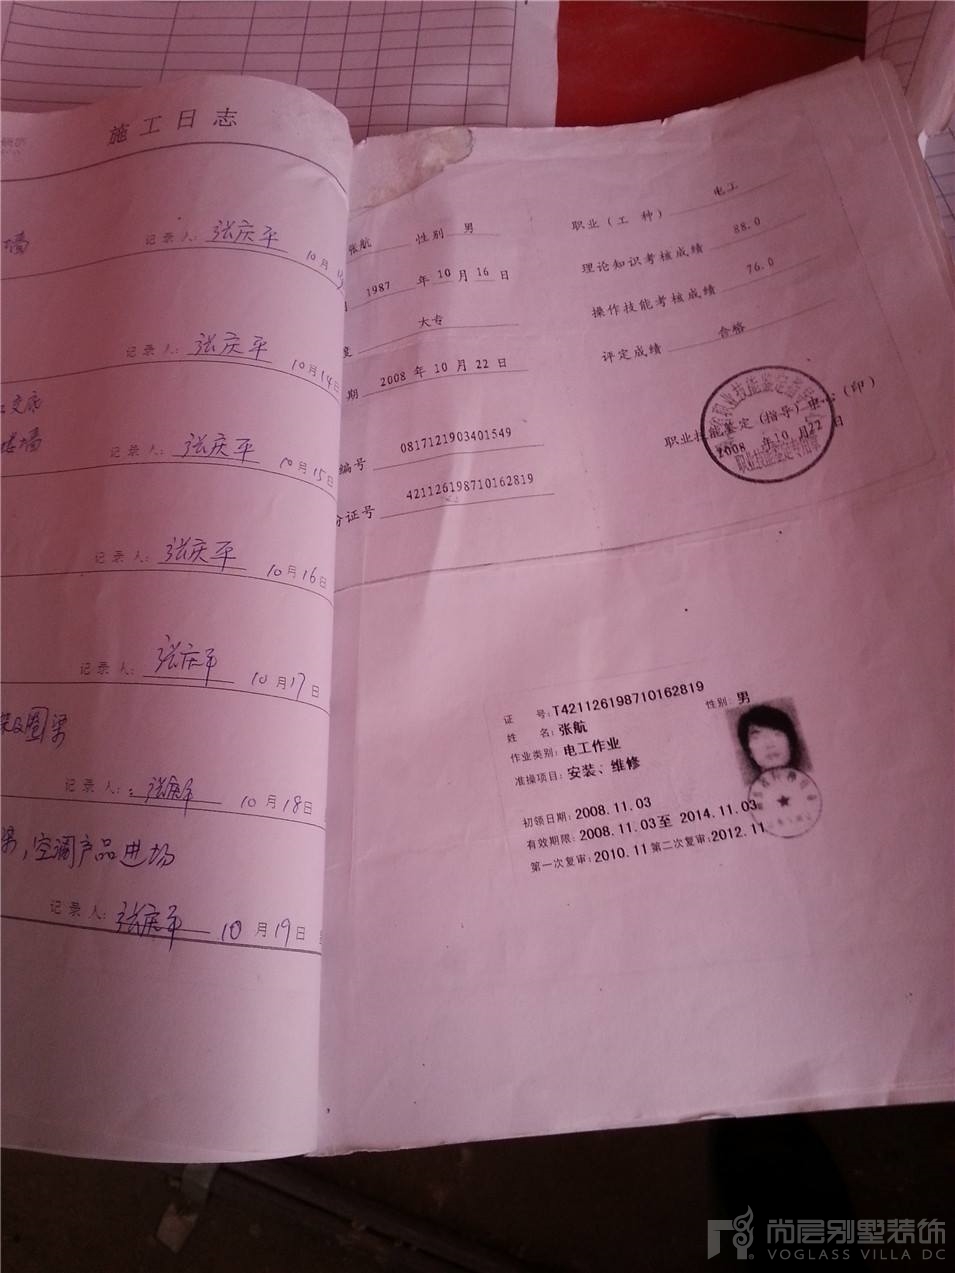 施工日志
墙
记录人: 张庆平 10月
记录人: 张庆平 10月14日
交底
墙
记录人: 张庆平 10月15日
记录人: 张庆平 10月16日
记录人: 张庆平 10月17日
及圈梁
记录人: 张庆平 10月18日
梁,空调产品进场
记录人: 张庆平 10月19日
张航 性别 男
1987 年 10 月 16 日
大专
期 2008 年 10 月 22 日
编号 0817121903401549
份证号 421126198710162819
职业(工 种) 电工
理论知识考核成绩 88.0
操作技能考核成绩 76.0
评定成绩 合格
职业技能鉴定(指导)中心(印)
2008 年10 月22 日
职业技能鉴定专用章
证 号:T421126198710162819
姓 名:张航 性别:男
作业类别:电工作业
准操项目:安装、维修
初领日期:2008.11.03
有效期限:2008.11.03至 2014.11.03
第一次复审:2010.11 第二次复审:2012.11
尚层别墅装饰
VOGLASS VILLA DC